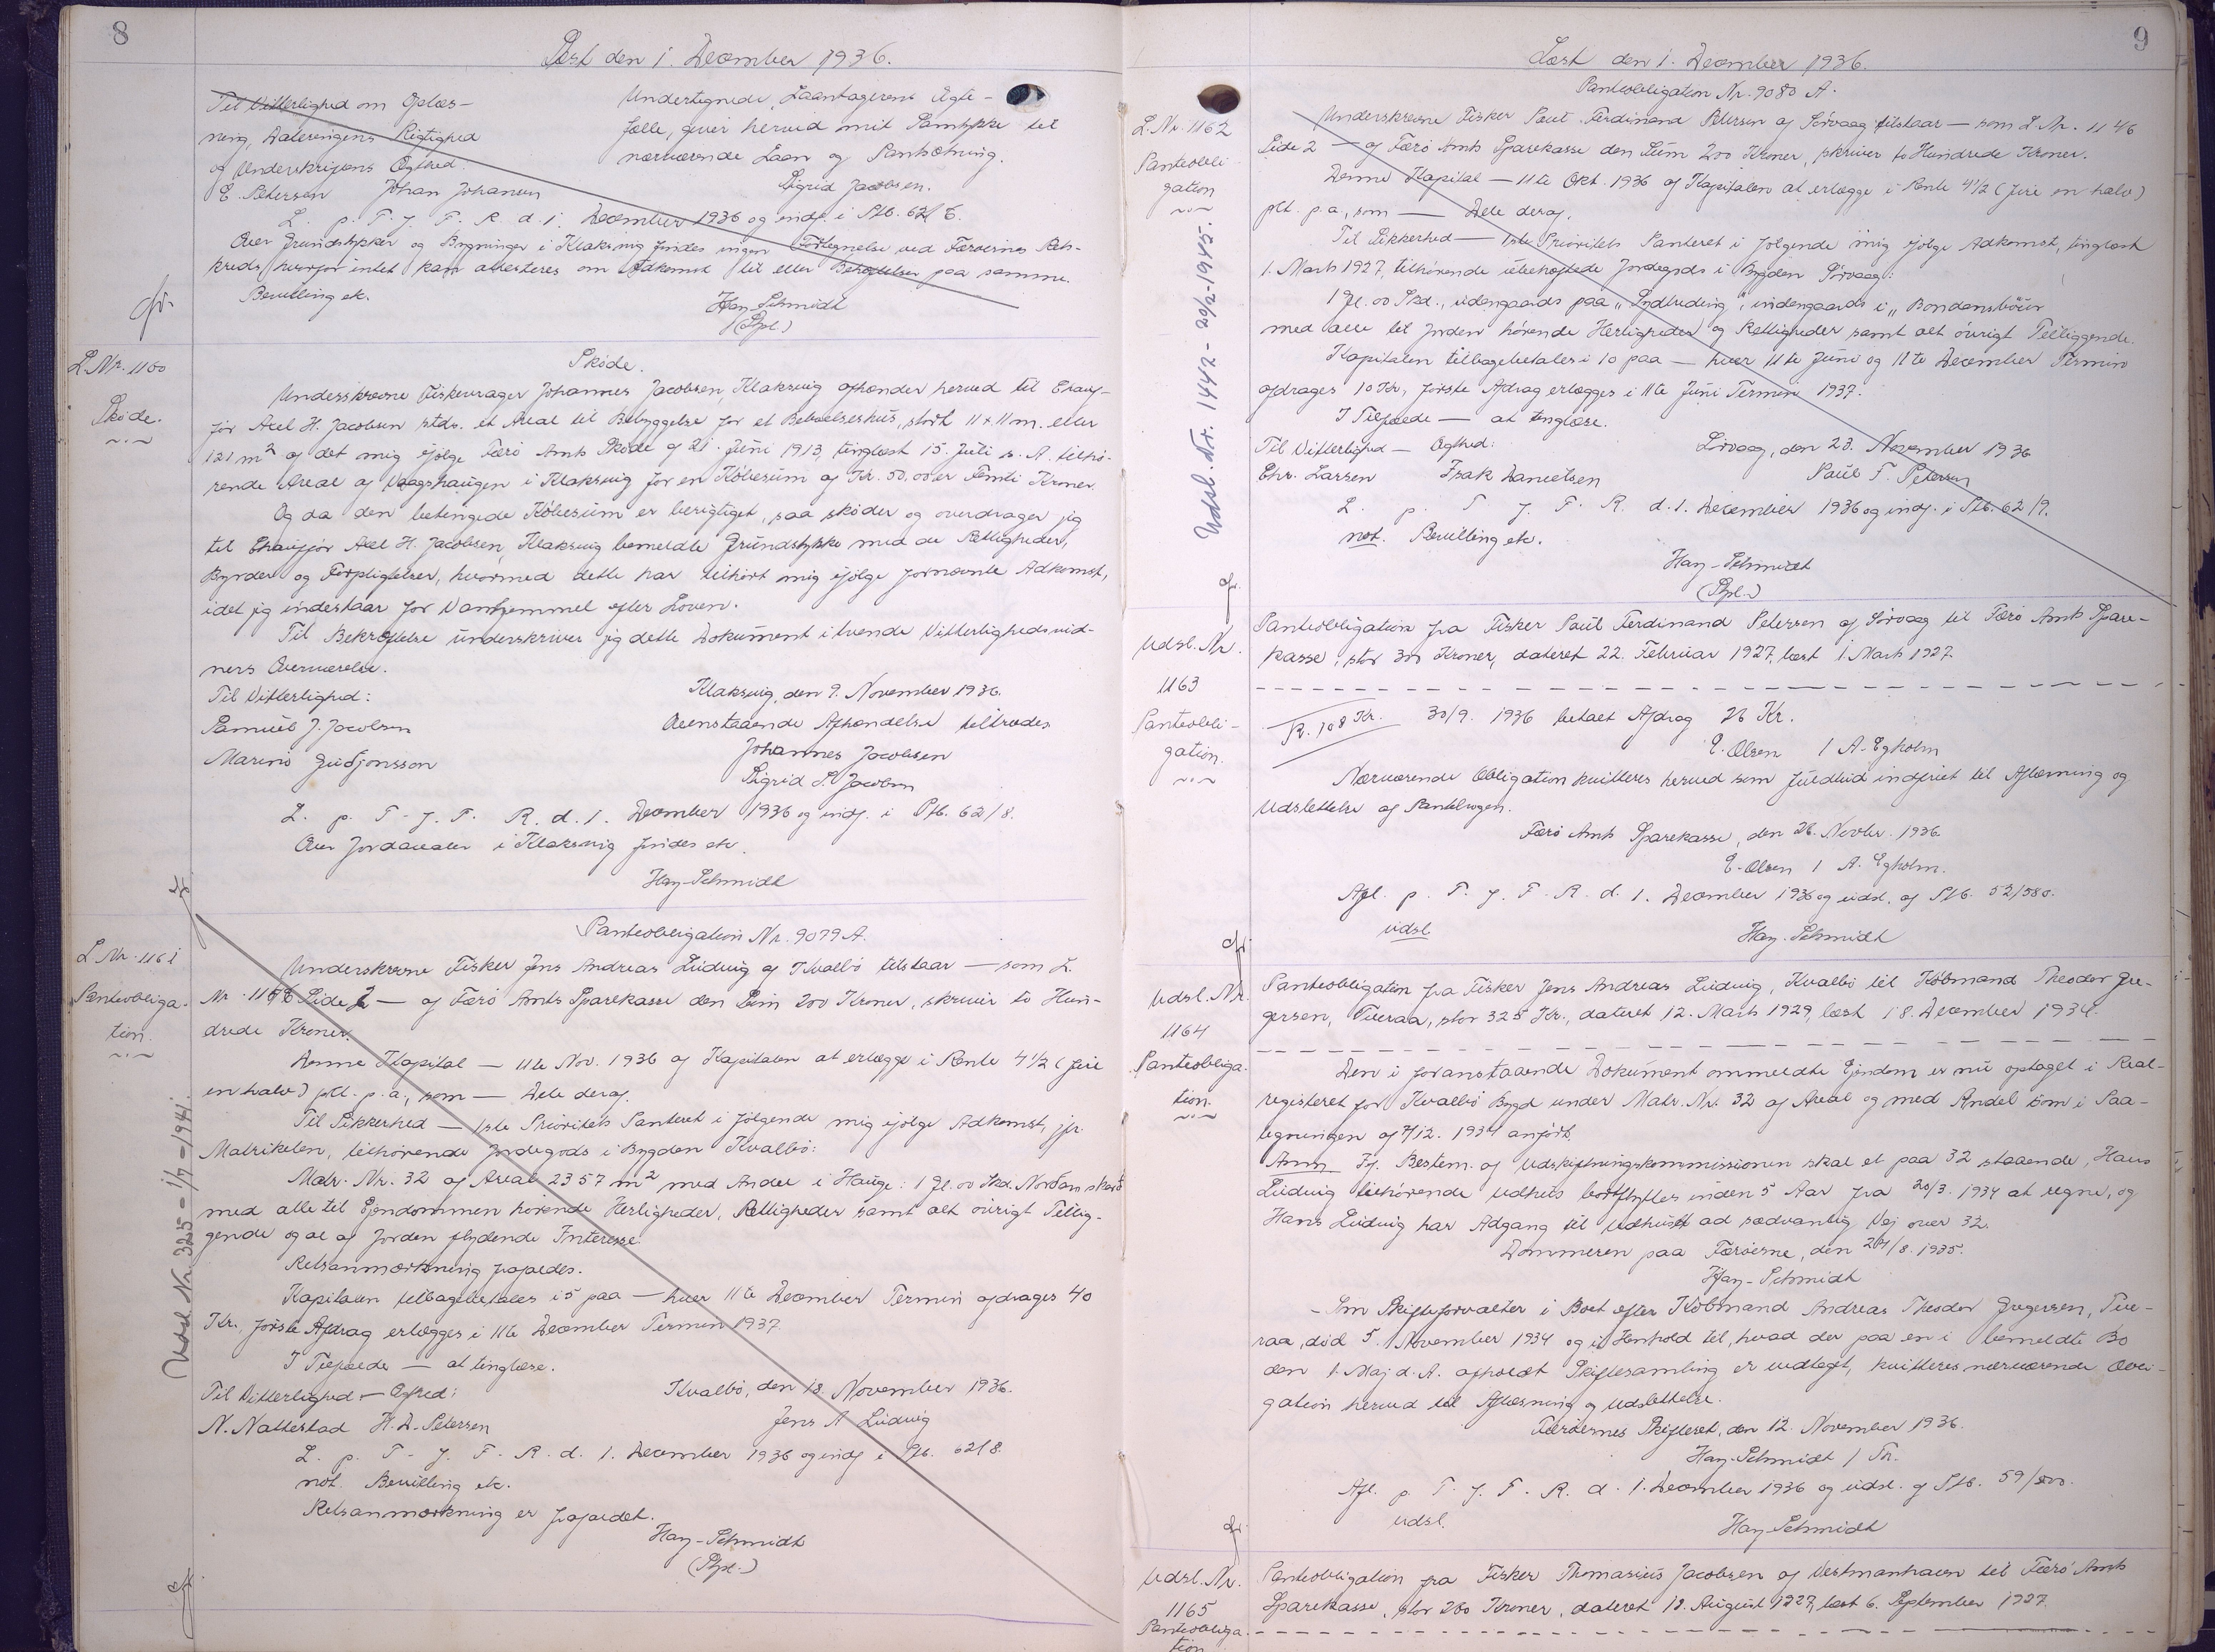 8
Læst den 1. December 1936.
Til Vitterlighed om Oplæs-
ning, Dateringens Rigtighed
og Underskriftens Ægthed:
E. Petersen Johan Johansen
Undertegnede, Laantagerens Ægte-
fælle, giver herved mit Samtykke til
nærværende Laan og Pantsætning.
Sigrid Jacobsen.
L. p. T. f. F. R. d. 1. December 1936 og indf. i Ptb. 62/6.
Over Grundstykker og Bygninger i Klaksvig findes ingen Fortegnelse ved Færøernes Rets-
kreds, hvorfor intet kan attesteres om Adkomst til eller Behæftelser paa samme.
Bevilling etc.
Hay-Schmidt
(Pfpl.)
L. Nr. 1160
Skøde.
Skøde.
Underskrevne Fiskevrager Johannes Jacobsen, Klaksvig afhænder herved til Chauf-
før Axel H. Jacobsen stds. et Areal til Bebyggelse for et Beboelseshus, stort 11 x 11 m. eller
121 m² af det mig ifølge Færø Amts Skøde af 21. Juni 1913, tinglæst 15. Juli s. A. tilhø-
rende Areal af Vaagshaugen i Klaksvig for en Købesum af Kr. 50,00 er Femti Kroner.
Og da den betingede Købesum er berigtiget, saa skøder og overdrager jeg
til Chauffør Axel H. Jacobsen, Klaksvig bemeldte Grundstykke med de Rettigheder,
Byrder og Forpligtelser, hvormed dette har tilhørt mig ifølge fornævnte Adkomst,
idet jeg indestaar for Vanhjemmel efter Loven.
Til Bekræftelse underskriver jeg dette Dokument i tvende Vitterlighedsvid-
ners Overværelse.
Til Vitterlighed:
Samuel J. Jacobsen
Marinó Guðjonsson
Klaksvig, den 9. November 1936.
Ovenstaaende Afhændelse tiltrædes
Johannes Jacobsen
Sigrid S. Jacobsen
L. p. T. f. F. R. d. 1. December 1936 og indf. i Ptb. 62/8.
Over Jordarealer i Klaksvig findes etc.
Hay-Schmidt
L. Nr. 1161
Panteobliga-
tion.
Udsl. Nr. 325 - 1/7 - 1941.
Panteobligation Nr. 9079 A.
Underskrevne Fisker Jens Andreas Ludvig af Kvalbø tilstaar — som L.
Nr. 1146 Side 2 — af Færø Amts Sparekasse den Sum 200 Kroner, skriver to Hun-
drede Kroner.
Denne Kapital — 11te Nov. 1936 af Kapitalen at erlægge i Rente 4 1/2 (fire
en halv) pCt. p. a., som — Dele deraf.
Til Sikkerhed — 1ste Prioritets Panteret i følgende mig ifølge Adkomst, jfr.
Matrikelen, tilhørende Jordegods i Bygden Kvalbø:
Matr. Nr. 32 af Areal 2357 m² med Andel i Hauge: 1 Gl. 00 Skd. Norðanskarð
med alle til Ejendommen hørende Herligheder, Rettigheder samt alt øvrigt Tillig-
gende og al af Jorden flydende Interesse.
Retsanmærkning frafaldes.
Kapitalen tilbagebetales i 5 paa — hver 11te December Termin afdrages 40
Kr., første Afdrag erlægges i 11te December Termin 1937.
I Tilfælde — at tinglæse.
Til Vitterlighed — Ægthed:
N. Nattestad H. D. Petersen
Kvalbø, den 18. November 1936.
Jens A Ludvig
L. p. T. f. F. R. d. 1. December 1936 og indf. i Ptb. 62/8.
not. Bevilling etc.
Retsanmærkning er frafaldet.
Hay-Schmidt
(Pfpl.)
9
Læst den 1. December 1936.
L. Nr. 1162
Panteobli-
gation
Udsl. Nr. 1442 - 20/12-1945.
Panteobligation Nr. 9080 A.
Underskrevne Fisker Poul Ferdinand Petersen af Sørvaag tilstaar — som L. Nr. 1146
Side 2 — af Færø Amts Sparekasse den Sum 200 Kroner, skriver to Hundrede Kroner.
Denne Kapital — 11te Okt. 1936 af Kapitalen at erlægge i Rente 4 1/2 (fire en halv)
pCt. p. a., som — Dele deraf.
Til Sikkerhed — 1ste Prioritets Panteret i følgende mig ifølge Adkomst, tinglæst
1. Marts 1927, tilhørende ubehæftede Jordegods i Bygden Sørvaag:
1 Gl. 00 Skd., udengaards paa „Sydtreding", indengaards i „Bondansbøur
med alle til Jorden hørende Herligheder og Rettigheder samt alt øvrigt Tilliggende.
Kapitalen tilbagebetales i 10 paa — hver 11te Juni og 11te December Termin
afdrages 10 Kr., første Afdrag erlægges i 11te Juni Termin 1937.
I Tilfælde — at tinglæse.
Til Vitterlighed — Ægthed:
Chr. Larsen Isak Danielsen
Sørvaag, den 23. November 1936
Poul F. Petersen
L. p. T. f. F. R. d. 1. December 1936 og indf. i Ptb. 62/9.
not. Bevilling etc.
Hay-Schmidt
(Pfpl.)
Udsl. Nr.
1163
Panteobli-
gation.
Panteobligation fra Fisker Poul Ferdinand Petersen af Sørvaag til Færø Amts Spare-
kasse, stor 300 Kroner, dateret 22. Februar 1927, læst 1. Marts 1927.
R. 108 Kr. 30/9. 1936 betalt Afdrag 26 Kr.
E. Olsen / A. Egholm
Nærværende Obligation kvitteres herved som fuldtud indfriet til Aflæsning og
Udslettelse af Pantebogen.
Færø Amts Sparekasse, den 26. Novbr. 1936.
E. Olsen / A. Egholm.
Afl. p. T. f. F. R. d. 1. December 1936 og udsl. af Ptb. 52/580.
udsl.
Hay-Schmidt
Udsl. Nr.
1164
Panteobliga-
tion.
Panteobligation fra Fisker Jens Andreas Ludvig, Kvalbø til Købmand Theodor Gre-
gersen, Tveraa, stor 325 Kr., dateret 12. Marts 1929, læst 18. December 1934.
Den i foranstaaende Dokument ommeldte Ejendom er nu optaget i Real-
registeret for Kvalbø Bygd under Matr. Nr. 32 af Areal og med Andel som i Paa-
tegningen af 7/12. 1934 anført.
Anm. If. Bestem. af Udskiftningskommissionen skal et paa 32 staaende, Hans
Ludvig tilhørende Udhus bortflyttes inden 5 Aar fra 20/3. 1934 at regne, og
Hans Ludvig har Adgang til Udhuset ad sædvanlig Vej over 32.
Dommeren paa Færøerne, den 24/8. 1935.
Hay-Schmidt
Som Skifteforvalter i Boet efter Købmand Andreas Theodor Gregersen, Tve-
raa, død 5. November 1934 og i Henhold til, hvad der paa en i bemeldte Bo
den 1. Maj d. A. afholdt Skiftesamling er vedtaget, kvitteres nærværende Obli-
gation herved til Aflæsning og Udslettelse.
Færøernes Skifteret, den 12. November 1936.
Hay-Schmidt /
Afl. p. T. f. F. R. d. 1. December 1936 og udsl. af Ptb. 59/
udsl.
Hay-Schmidt
Udsl. Nr.
1165
Panteobliga-
tion
Panteobligation fra Fisker Thomasius Jacobsen af Vestmanhavn til Færø Amts
Sparekasse, stor 200 Kroner, dateret 18. August 1927, læst 6. September 1927.